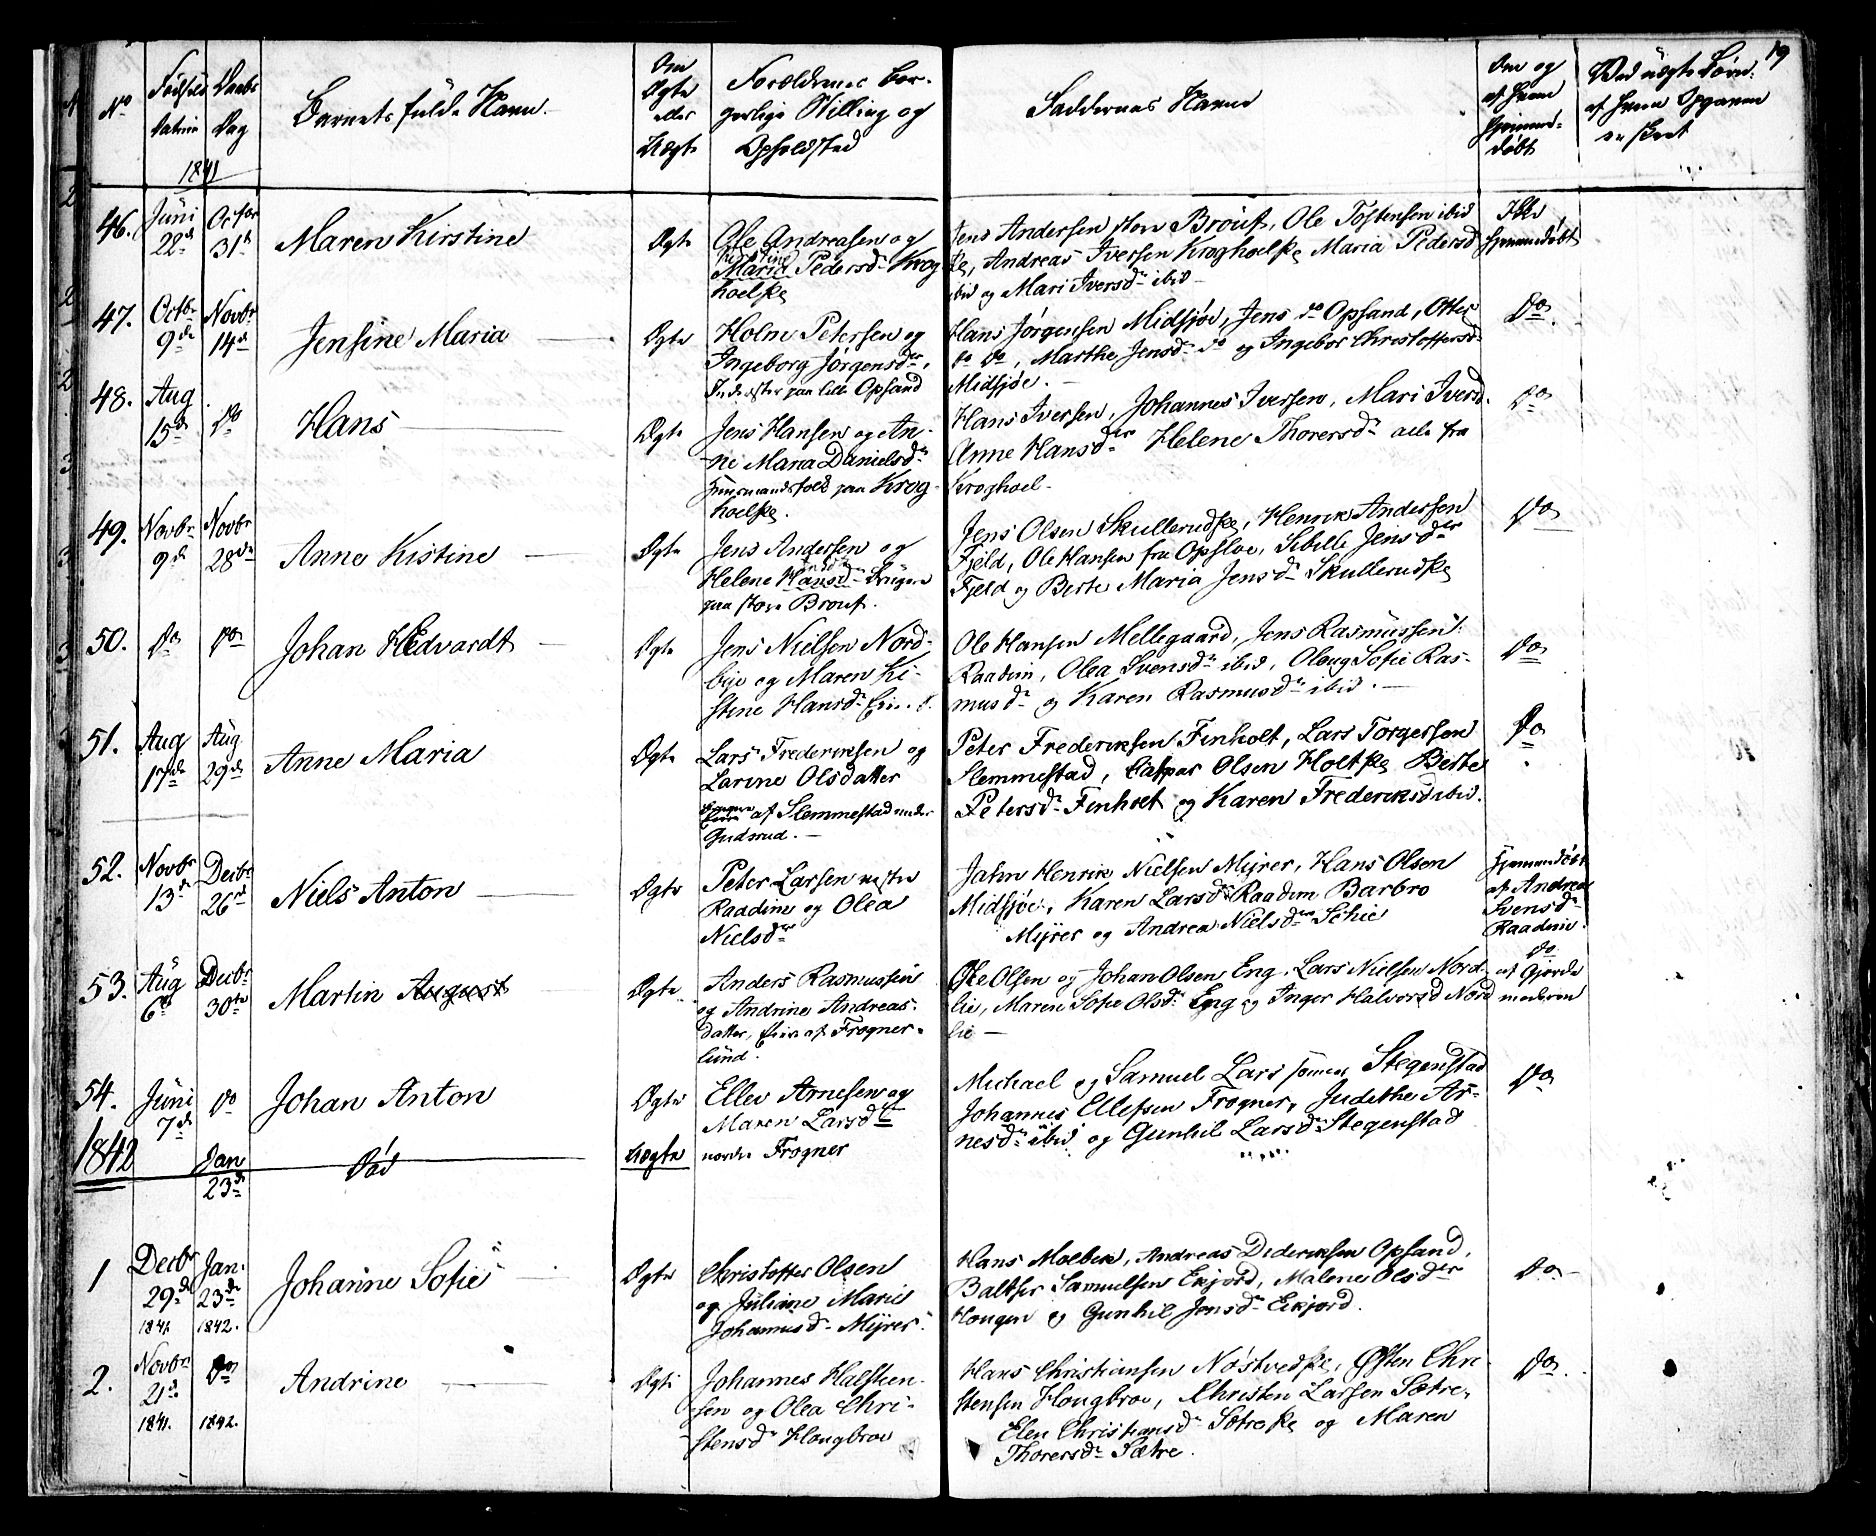 19
No
Fødsels
Datum
Daabs
Dag
Barnets fulde Navn.
Om
Ægte
eller
Uægte
Forældrenes bor-
gerlige Stilling og
Opholdsted
Faddernes Navne
Om og
af hvem
hjemme-
døbt
Ved uægte Børn:
af hvem Opgaven
er skeet
1841
46.
Juni
22d
31t
Maren Kirstine
Ægte
Ole Andreasen og
Maria Pedersdr Krog
hoelskg
Jens Andersen store Brout, Ole Tostensen ibid
Andreas Iversen Kroghoelskg Maria Pedersd
ibid og Mari Iversdr ibid
Ikke
hjemmedøbt
47.
Octbr
9de
Novbr
14de
Jensine Maria
Ægte
Holm Petersen og
Ingeborg Jørgensdr,
Inderster paa lille Opsand
Hans Jørgensen Midsjøe, Jens do Opsand, Otter
do do, Marthe Jensdr do og Ingebor Christoffersdr
Midsjøe.
Do
48.
Aug
15de
Do
Hans
Ægte
Jens Hansen og An-
ne Maria Danielsdr
Huusmandsfolk paa Krog-
hoelskg.
Hans Iversen, Johannes Iversen, Mari Iversd.
Anne Hansdr Helene Thorersdr alle fra
Kroghoel.
Do
49.
Novbr
9de
Novbr
28de
Anne Kistine
Ægte
Jens Andersen og
Helene Hansdr Brugere
paa store Brout.
Jens Olsen Skullerudskg, Henrik Andersen
Fjeld, Ole Hansen fra Opsloe, Sibille Jensder
Fjeld og Berte Maria Jensdr Skullerudskg
Do
50.
Do
Do
Johan Hedvardt
Ægte
Jens Nielsen Nord-
bye og Maren Ki-
stine Hansdr
Ole Hansen Mellegaard, Jens Rasmussen
Raadim, Olea Svensdr ibid, Oloug Sofie Ras-
musdr og Karen Rasmusdr ibid.
Do
51.
Aug
17de
Aug
29de
Anne Maria
Ægte
Lars Frederiksen og
Larine Olsdatter
af Slemmestad under
Gudsrud.
Peter Frederiksen Finholt, Lars Torgersen
Slemmestad, Casper Olsen Holtskg Berte
Petersdr Finholt og Karen Frederiksd ibid.
Do
52.
Novbr
13de
Decbr
26de
Niels Anton
Ægte
Peter Larsen vestre
Raadim og Olea
Nielsdr
John Henrik Nielsen Myrer, Hans Olsen
Midsjøe, Karen Larsdr Raadim Barbro
Myrer og Andrea Nielsdr Schie
Hjemmedøbt
af Andrea
Svensdr
Raadim.
53.
Aug
6te
Decbr
30te
Martin August
Ægte
Anders Rasmussen
og Andrine Andreas-
datter, Eiere af Frogner-
lund.
Ole Olsen og Johan Olsen Eng, Lars Nielsen Nord-
lie, Maren Sofie Olsdr Eng og Inger Halvorsd Nord
lie
do
af Gjorde
moderen
54.
Juni
7de
Do
Johan Anton
Ægte
Ellev Arnesen og
Maren Larsdr
nordre Frogner
Michael og Samuel Lars sønner Stegenstad
Johannes Ellefsen Frogner, Judithe Ar-
nesdr ibid og Gunhil Larsdr Stegenstad
Do
1842
Jan
23de
Død
Uægte
1
Decbr
29de
1841
Jan.
23de
1842.
Johanne Sofie
Ægte
Christoffer Olsen
og Juliane Marie
Johannisdr Myrer
Hans Molbek, Andreas Dideriksen Opsand,
Baltser Samuelsen Eikjord, Malene Olsder
Hougen og Gunhil Jensdr Eikjord.
Do
2.
Novbr
21de
1841.
Do
1842.
Andrine
Ægte
Johannes Halsteen-
sen og Olea Chri-
stensdr Hougbroe
Hans Christiansen Nøstvedskg, Østen Chri-
stensen Hougbroe, Christen Larsen Sætre,
Elen Christiansdr Sætreskg og Maren
Thorersdr Sætre.
Do